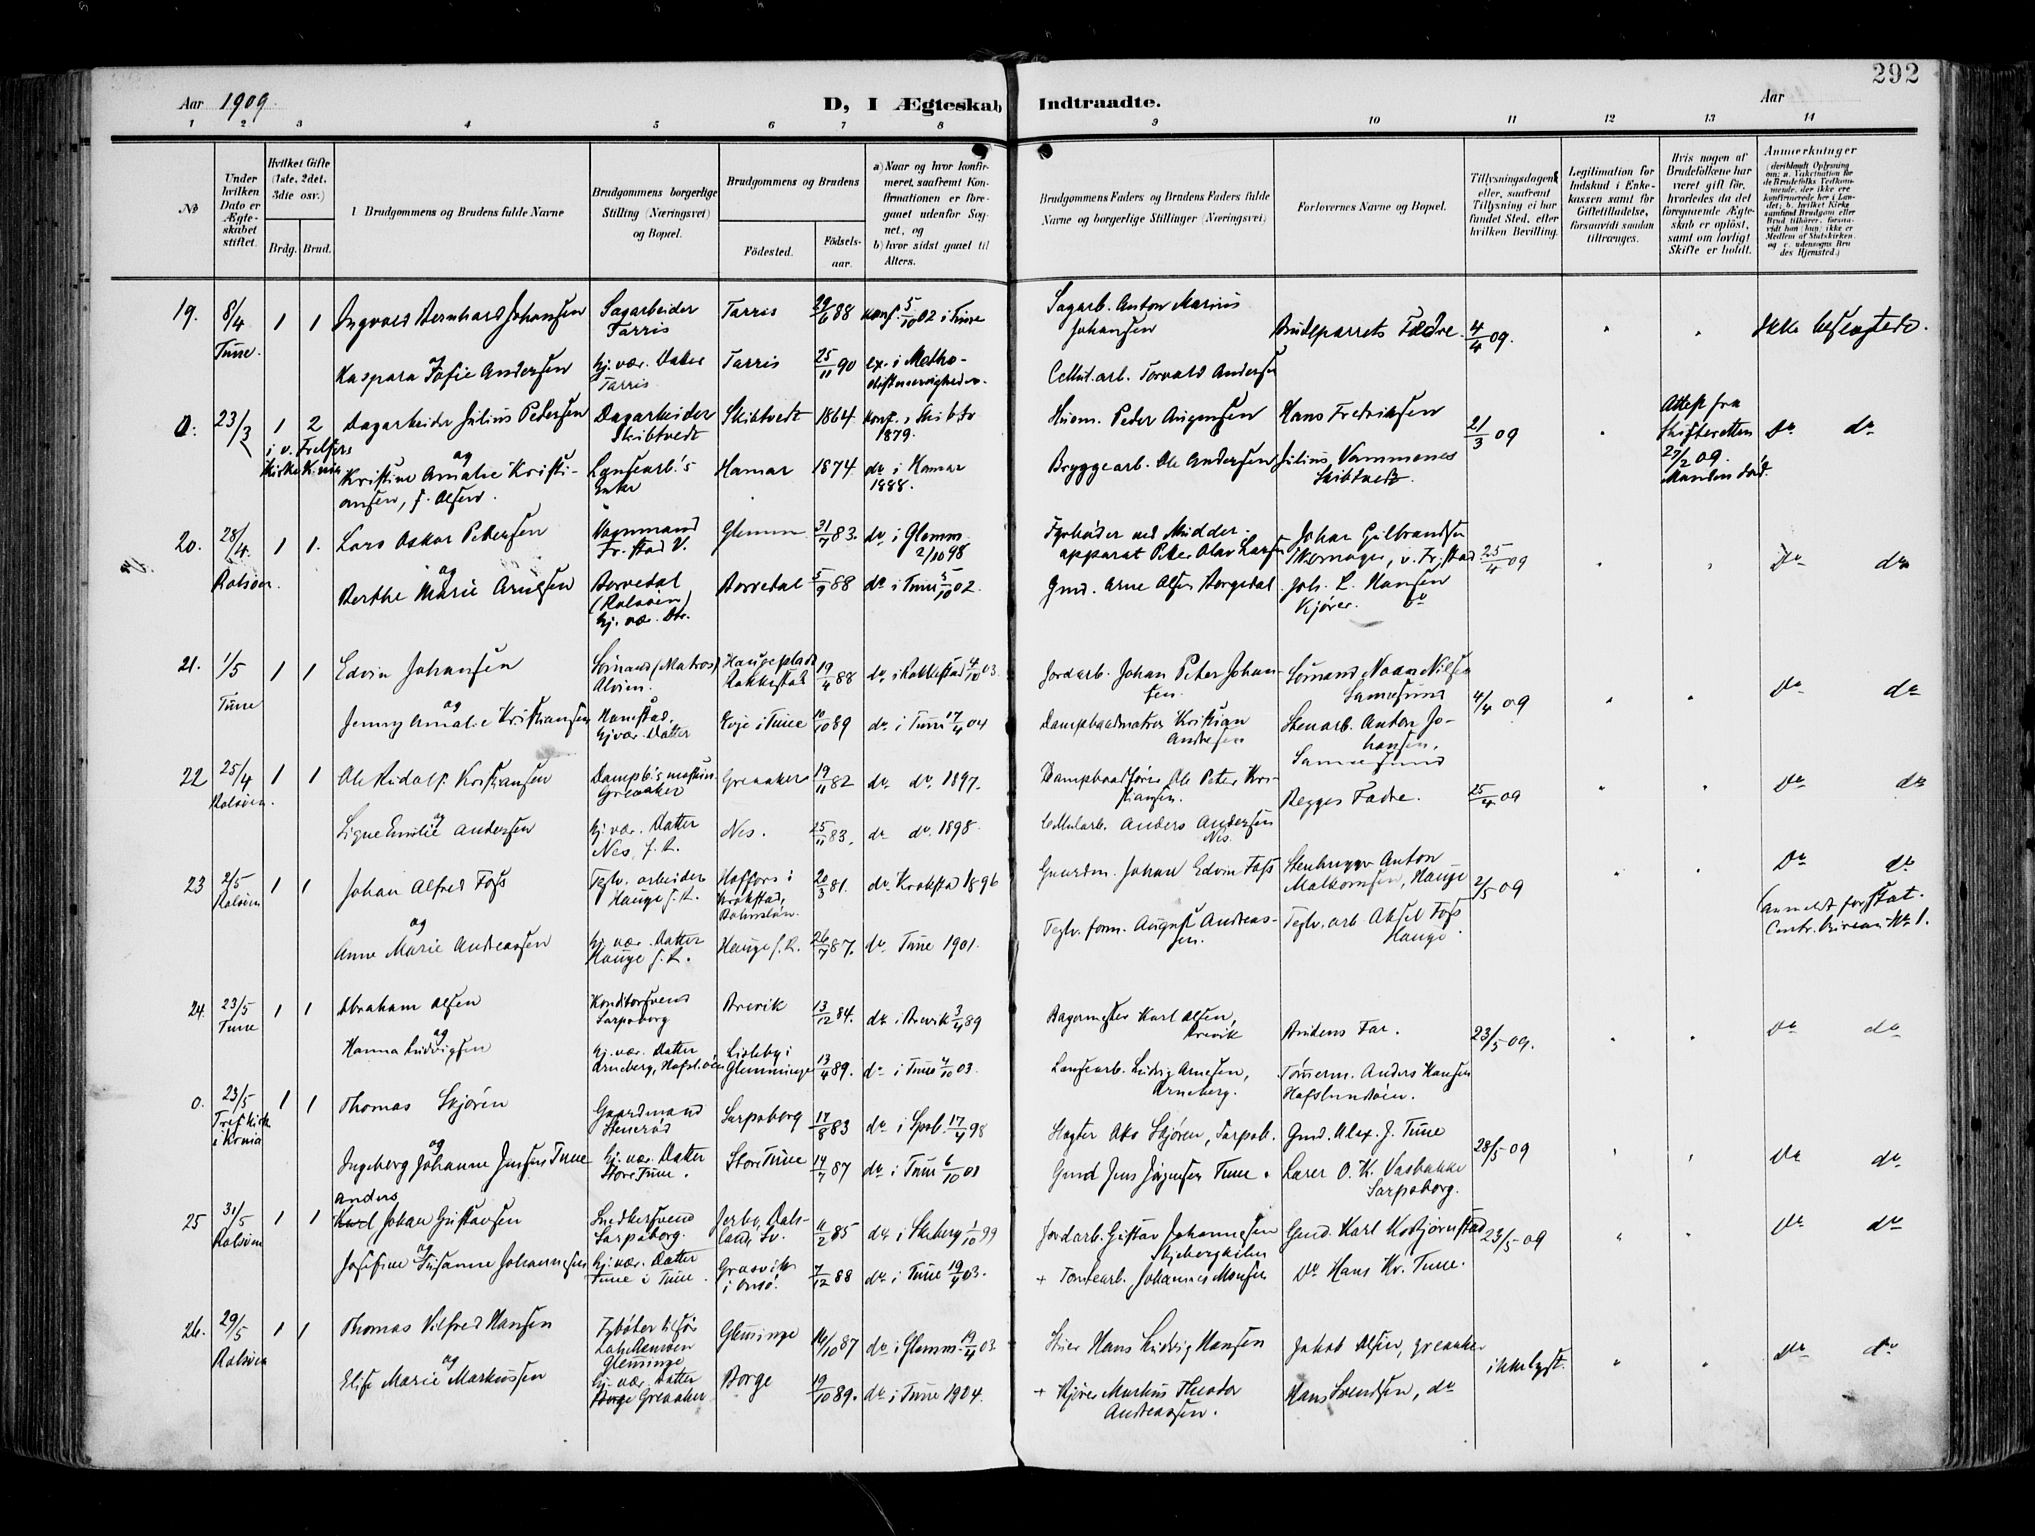 292
Aar 1909. D, I Ægteskab Indtraadte. Aar
1 2 3 4 5 6 7 8 9 10 11 12 13 14
No
Under hvilken Dato er Ægteskabet stiftet.
Hvilket Gifte (1ste, 2det, 3die osv.)
Brdg. Brud.
Brudgommens og Brudens fulde Navne
Brudgommens borgerlige Stilling (Næringsvei) og Bopæl.
Brudgommens og Brudens
Fødested.
Fødsels-aar.
a) Naar og hvor konfirmeret, saafremt Konfirmationen er foregaaet udenfor Sognet, og
b) hvor sidst gaaet til Alters.
Brudgommens Faders og Brudens Faders fulde Navne og borgerlige Stillinger (Næringsvei)
Forlovernes Navne og Bopæl.
Tillysningsdagen eller, saafremt Tillysning ei har fundet Sted, efter hvilken Bevilling.
Legitimation for Indskud i Enkekassen samt for Giftetilladelse, forsaavidt saadan tiltrænges.
Hvis nogen af Brudefolkene har været gift før, hvorledes da det foregaaende Ægteskab er opløst, samt om lovligt Skifte er holdt.
Anmerkninger
19. 8/4 Tune. 1 1 Ingvald Bernhard Johansen Sagarbeider Tarris Tarris 29/6 88 konf. 5/10 02 i Tune Sagarb. Anton Marius Johansen Brudeparrets Fædre 4/4 09. Ikke beslegtede.
og
Kaspara Sofie Andersen hj. vær. Datter Tarris Tarris 25/11 90 ex. i Methodistmenigheden. Cellul.arb. Torvald Andersen
0. 23/3 1 2 Dagarbeider Julius Pedersen Dagarbeider Skibtvedt Skibtvedt 1864. konf. i Skibtv 1879. Husm. Peder Augensen Hans Fredriksen 21/3 09 Attest fra Skifteretten 27/2 09. Manden død. Do do
i v. Frelsers Kirke K.nia
og
Kristine Amalie Kristiansen, f. Olsen. Løsearb's Enke Hamar 1874. do i Hamar 1888. Bryggearb. Ole Andersen Julius Vammenes Skibtvedt.
20. 28/4. Rolsøen. 1 1. Lars Oskar Petersen Vognmand Fr.stad V. Glemm 31/7 83. do. i Glemm. 2/10 98 Fyrbøder ved Mudderapparat Peter Olav Larsen Johan Gulbrandsen v. Fr.stad 25/4 09 Do do
og
Berthe Marie Arnesen Borredal (Rolsøen) hj. væ. Dtr. Borredal 5/9 88 do i Tune 5/10 02. Gmd. Arne Olsen Borgedal Joh. L. Hansen Kjører. do
21. 1/5 Tune 1 1 Edvin Johansen Sømand (Matros) Alvim. Haugeplads Rakkestad 19/4 88 do. i Rakkestad 4/10 03. Jordarb. Johan Peter Johansen. Sømand Noah Nilsen Sannesund 4/4 09 Do do
og
Jenny Amalie Kristiansen Hanestad. hj vær. Datter Evje i Tune 10/10 89 do i Tune 17/4 04 Dampbaadmatros Kristian Andresen Stenarb. Anton Johansen, Sannesund
22 25/4 Rolsøen. 1 1 Ole Rudolf Kristiansen Dampb's maskin. Greaaker Greaaker 19/11 82 do do 1897. Dampbaadfører Ole Peter Kristiansen. Begges Fædre. 25/4 09 Do do
og
Signe Emilie Andersen hj. vær. Datter Nes, f. R. Nes. 25/11 83. do do. 1898. Cellularb. Anders Andersen Nes.
23 2/5 Rolsøen 1 1 Johan Alfred Foss Teglv. arbeider Hauge f. R. Hoffors i Krokstad, Bohuslän. 20/3 81. do Krokstad 1896 Gaardm. Johan Edvin Foss Stenhugger Anton Malkomsen, Hauge 2/5 09 Do do
(anmeldt for Stat. Centr. bureau No 1.
og
Anne Marie Andreassen hj. vær. Datter Hauge f. R. Hauge f. R. 26/7 87. do. Tune 1901. Teglv. form. August Andreassen. Teglv. arb. Aksel Foss Hauge.
24. 23/5 Tune 1 1 Abraham Olsen Konditorsvend Sarpsborg Brevik 13/12 84. do i Brevik 3/4 89 Bagermester Karl Olsen, Brevik Brudens Far. 23/5 09. Do do
og
Hanna Ludvigsen hj. vær. Datter Arneberg, Hafslöen Lisleby i Glemminge 13/4 89. do i Tune 4/10 03. Løsearb. Ludvig Arnesen, Arneberg. Tømerm. Anders Hansen Hafslundsøen.
0. 23/5 Tref Kirk i Krnia 1 1 Thomas Skjøren Gaardmand Stenerød Sarpsborg 17/8 83 do i Spsb. 17/4 98 Hagter Aks Skjøren, Sarpsb. Gmd. Alex. J. Tune 28/5 09 Do do
og
Ingeborg Johanne Jensen Tune hj. vær. Datter Store Tune. Store Tune 14/7 87 do i Tune 6/10 01 Gmd Jens Jörgensen Tune. Lærer O. K. Vasbakke Sarpsborg.
25 31/5 Rolsøen 1 1 Anders Karl Johan Gustavsen Snedkersvend Sarpsborg. Jerbo, Dalsland, Sv. 11/2 85 do i Skeberg 1/10 99 Jordarb. Gustav Johannesen Skjebergkilen Gmd. Karl Kobjørnstad 23/5 09 Do do
og
Josefine Susanne Johannesen hj. vær. Datter Tune i Tune. Græsvik i Onsø. 7/12 88 do i Tune 19/4 03. + Tomtearb. Johannes Monsen Do Hans Kr. Tune.
26. 29/5 Rolsøen 1 1 Thomas Vilfred Hansen Fyrbøter tilsjøs Glemminge Glemminge 16/10 87 do i Glemm. 19/4 03 Stuer Hans Ludvig Hansen Jakob Olsen, Greaaker ikke lyst. Do do
og
Elise Marie Markussen hj. vær. Datter Borge Greaaker Borge 19/10 89. do i Tune 1904. + Kjører Markus Theodor Andreassen. Hans Svendsen, do